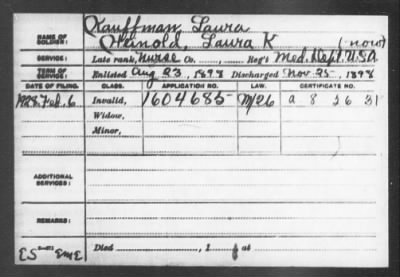 Kauffman Laura
NAME OF SOLDIER: Weinold, Laura K (now)
SERVICE: Late rank, Nurse Co. , Reg't Med. Dept. U.S.A.
TERM OF SERVICE: Enlisted Aug 23, 1898 Discharged Nov. 25, 1898
DATE OF FILING. CLASS. APPLICATION NO. LAW. CERTIFICATE NO.
1928 Feb. 6 Invalid, 1604685 M/26 a 8 26 31
Widow,
Minor,
ADDITIONAL SERVICES:
REMARKS:
ES EME Died , 1 at